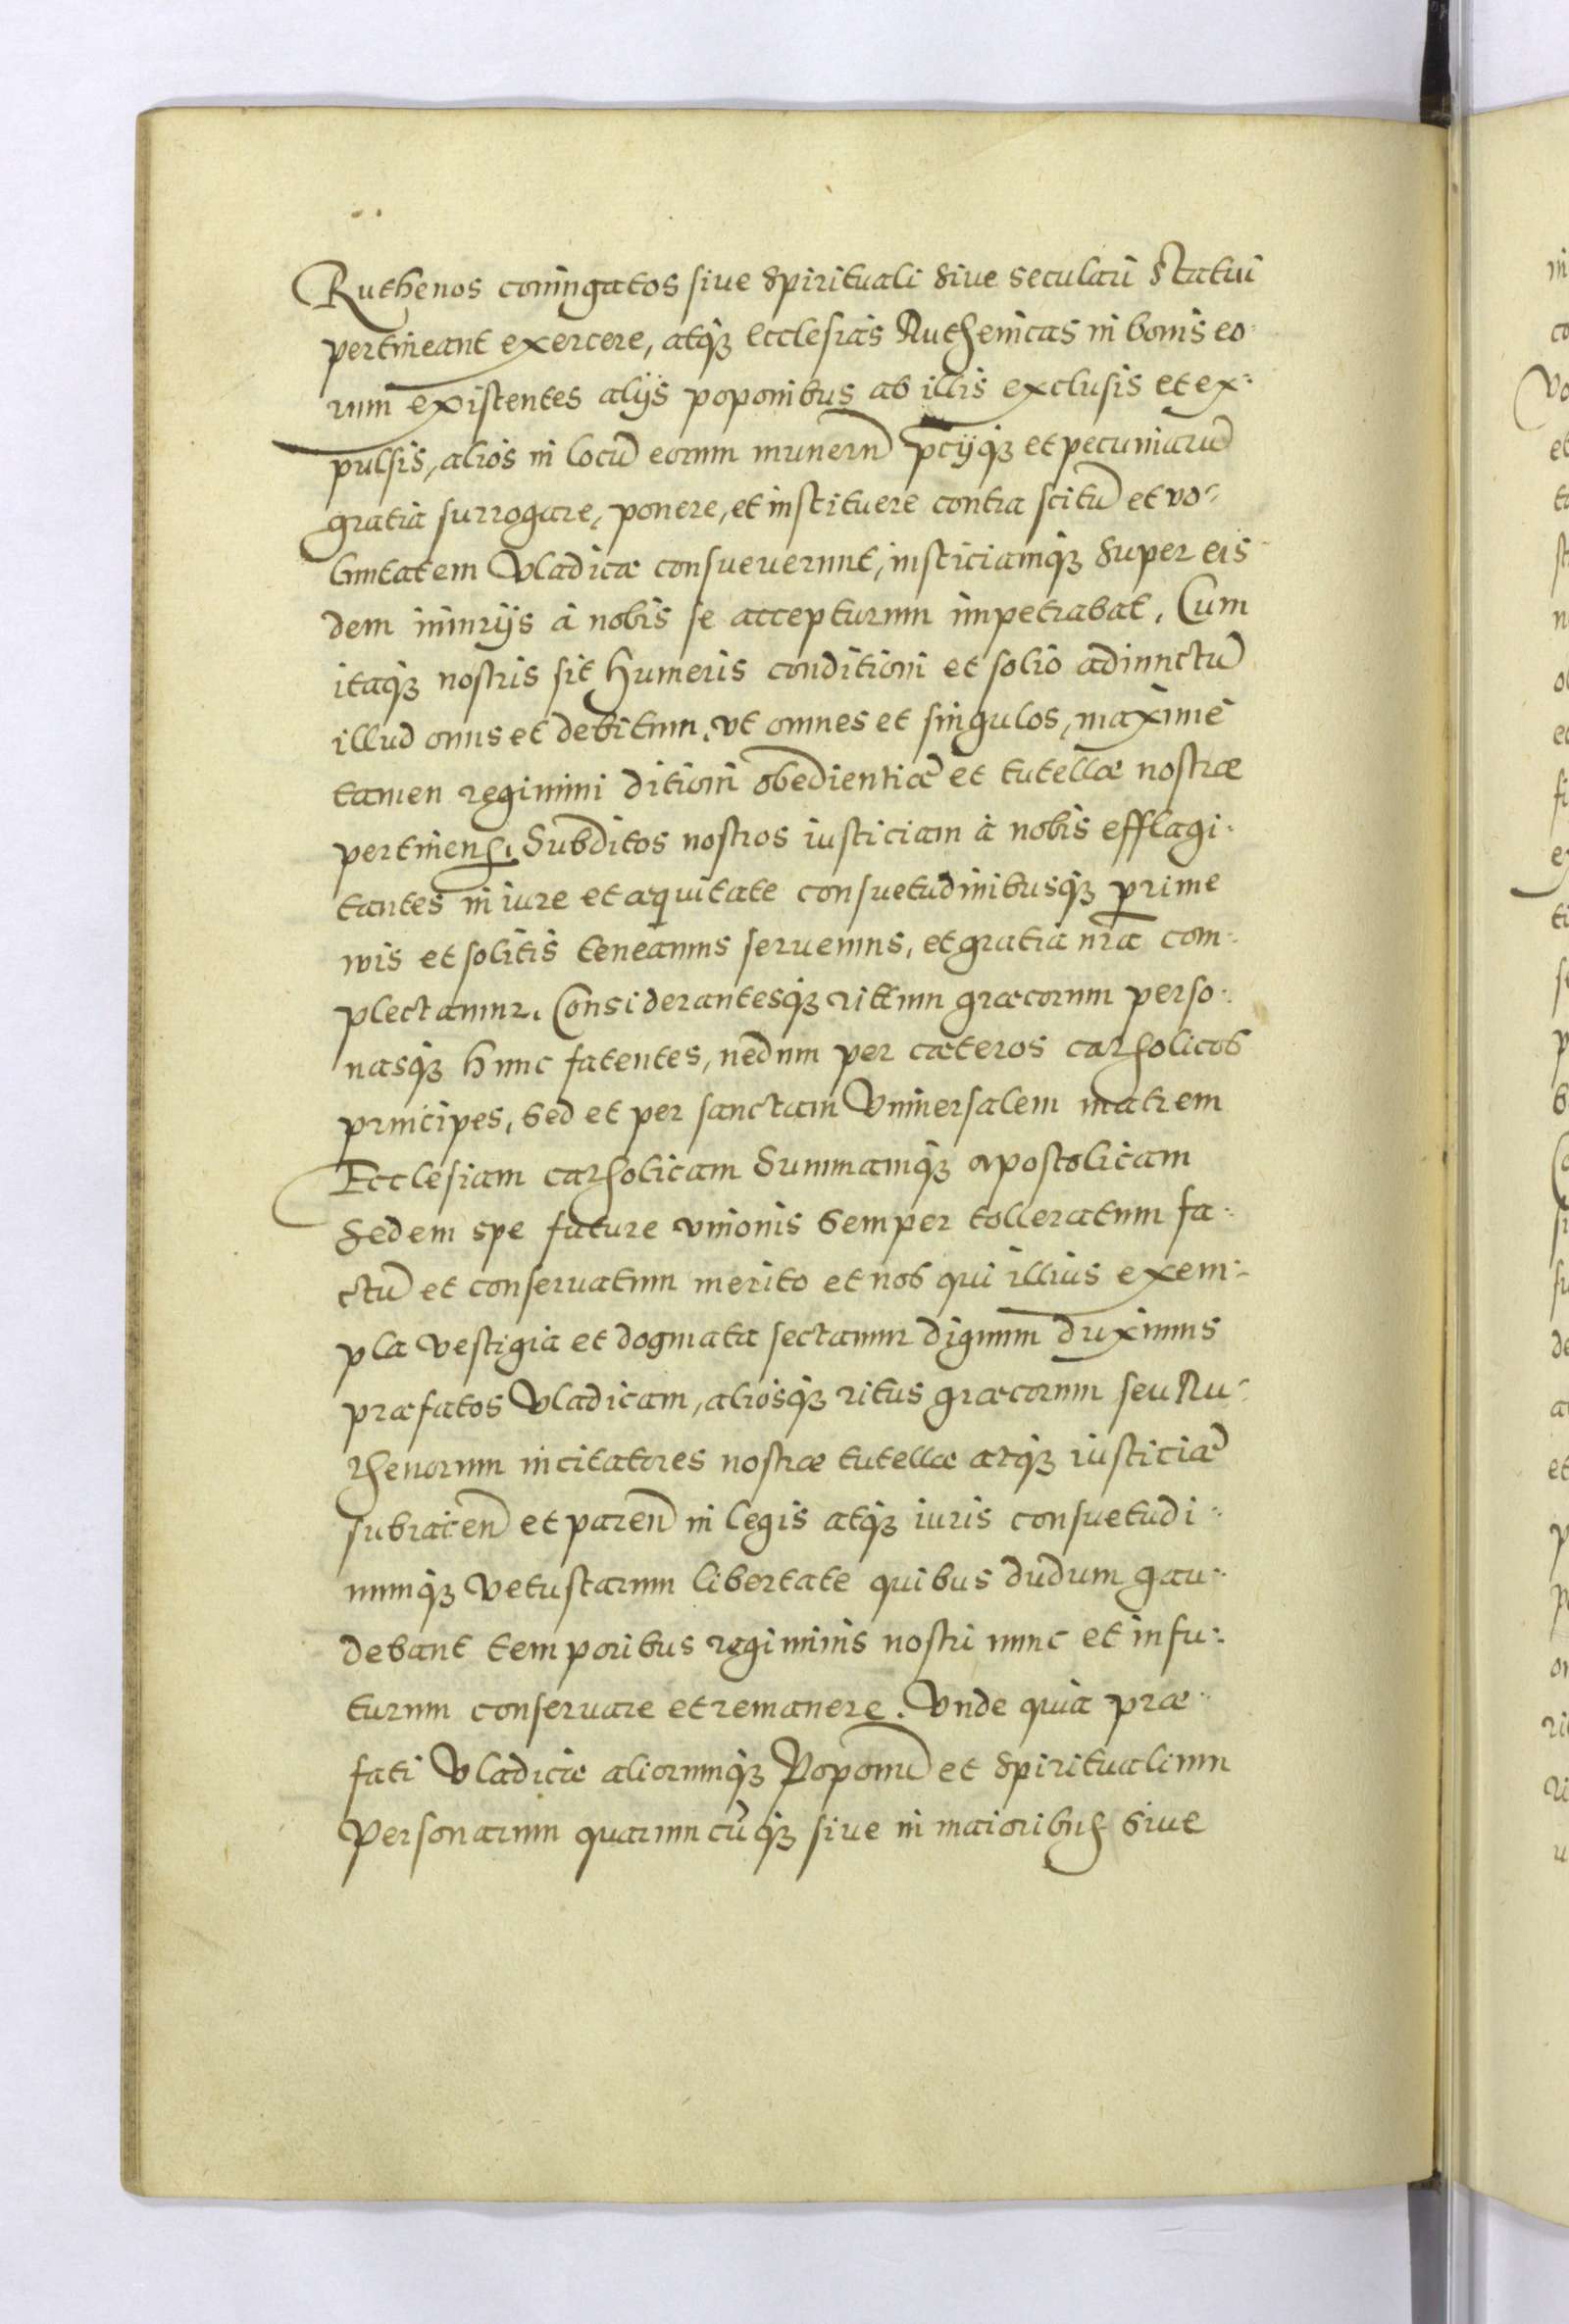 Ruthenos coniugatos siue spirituali siue seculari statui
pertineant exercere, atqꜗ Ecclesias Ruthenicas in bonis eo-
rum existentes alijs poponibus ab illis exclusis et ex-
pulsis, alios in locū eorum munerū p̄cijqꜗ et pecuniarū
gratia surrogare, ponere, et instituere contra scitū et vo-
luntatem Vladicæ consueuerunt, iusticiamqꜗ super eis
dem iniurijs à nobis se accepturum impetrabat. Cum
itaqꜗ nostris sit humeris conditioni et solio adiunctū
illud onus et debitum, vt omnes et singulos, maximè
tamen regimini ditioni obedientiæ et tutellæ nostræ
pertinens. Subditos nostros iusticiam à nobis efflagi-
tantes in iure et æquitate consuetudinibusqꜗ prime
uis et solitis teneamus seruemus, et gratia nr̄a com-
plectamur. Considerantesqꜗ rittum græcorum perso-
nasqꜗ hunc fatentes, nedum per cæteros catholicos
principes, sed et per sanctam Vniuersalem matrem
Ecclesiam catholicam summamqꜗ apostolicam
sedem spe future vnionis semper tolleratum fa-
ctū et conseruatum merito et nos qui illius exem-
pla vestigia et dogmata sectamur dignum duximus
præfatos Vladicam, aliosqꜗ ritus græcorum seu Ru-
thenorum incitatores nostræ tutellæ atqꜗ iusticiæ
subiacen̄ et paren̄ in legis atqꜗ iuris consuetudi-
numqꜗ vetustarum libertate quibus dudum gau-
debant temporibus regiminis nostri nunc et in fu-
turum conseruare et remanere. Vnde quia præ-
fati Vladicæ aliorumqꜗ Poponū et spiritualium
personarum quarumcūqꜗ siue in maioribus siue